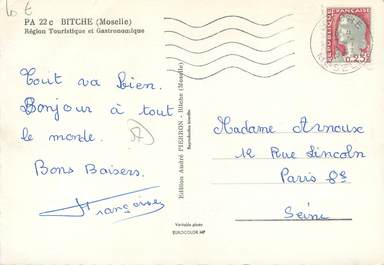 10 €
PA 22 c BITCHE (Moselle)
Région Touristique et Gastronomique
Tout va bien.
Bonjour à tout
le monde.
Bons Baisers.
Françoise
Edition André PIERRON - Bitche (Moselle)
Reproduction interdite
Véritable photo
EUROCOLOR MP
0,25
Madame Arnoux
12 Rue Lincoln
Paris 8e
Seine